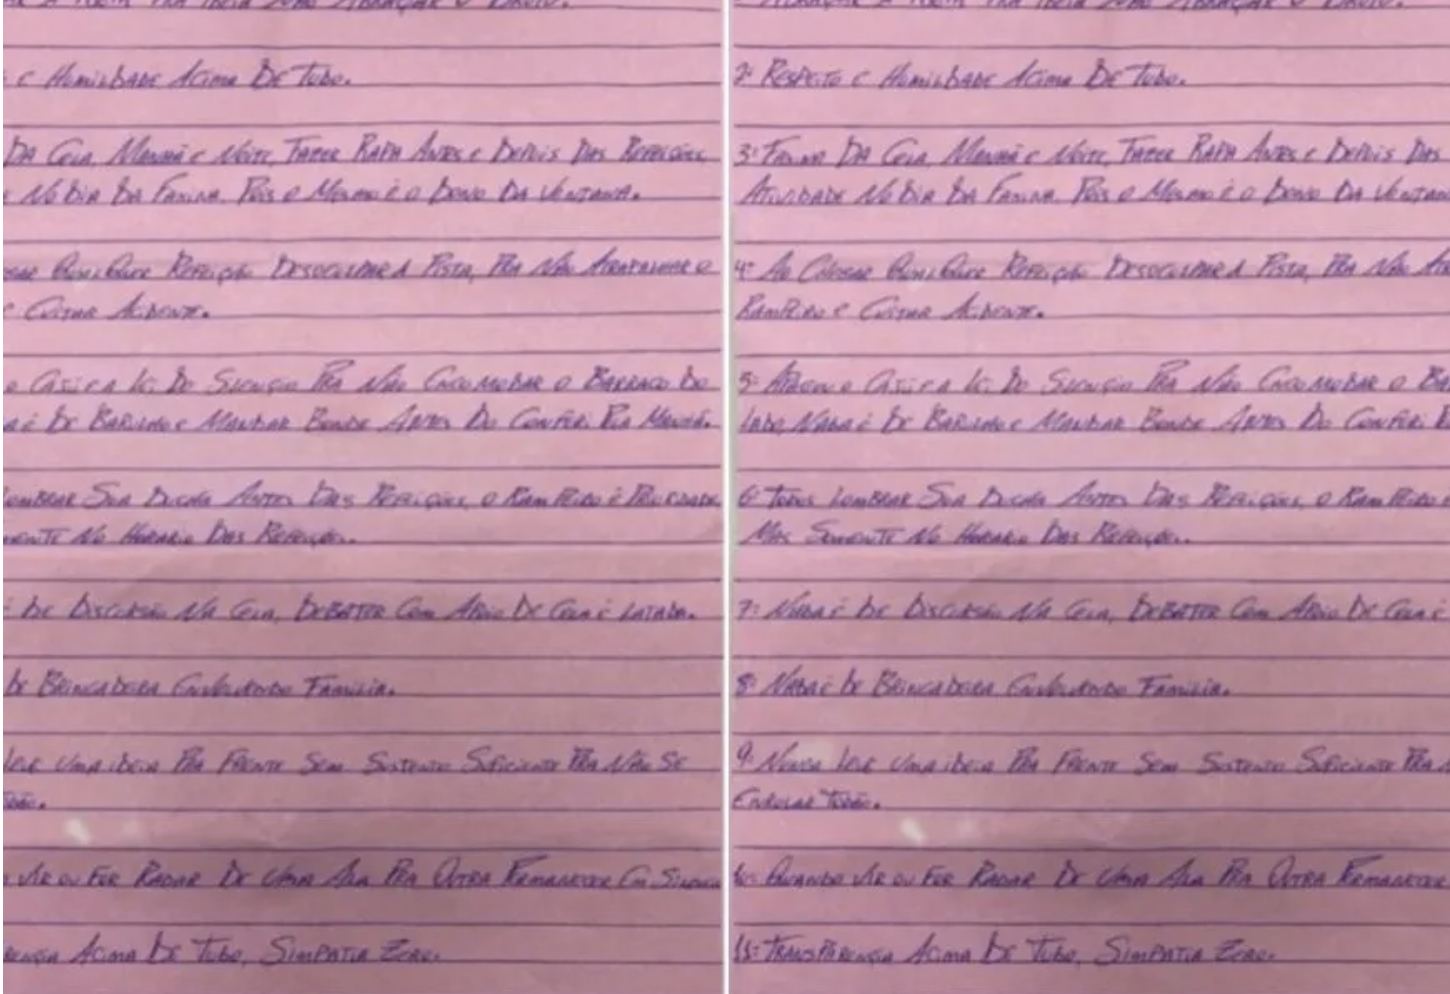 E HUMILDADE ACIMA DE TUDO.
DA CELA, MANHÃ E NOITE, FAZER RAPA ANTES E DEPOIS DAS REFEIÇÕES
NO DIA DA FAXINA, POIS O MESMO É O DONO DA VENTANA.
QUALQUER REFEIÇÃO DESOCUPAR A PISTA, PRA NÃO ATRAPALHAR O
E EVITAR ACIDENTE.
LEI DO SILENCIO PRA NÃO ENCOMODAR O BARRACO DO
É DE BARULHO E MANDAR BONDE ANTES DO CONFERI PELA MANHÃ.
LOMBRAR SUA DUCHA ANTES DAS REFEIÇÕES, O RAMPEIRO É PRIORIDADE
NO HORARIO DAS REFEIÇÕES.
DE DISCURSÃO NA CELA, DEBATER COM APOIO DE CELA É LATADA.
DE BRINCADEIRA ENVOLVENDO FAMILIA.
LEVE UMA IDEIA PRA FRENTE SEM SUSTENTO SUFICIENTE PRA NÃO SE
VIR OU FOR RADAR DE UMA ALA PRA OUTRA PERMANECER EM
ACIMA DE TUDO, SIMPATIA ZERO.
2º RESPEITO E HUMILDADE ACIMA DE TUDO.
3º FAXINA DA CELA, MANHÃ E NOITE, FAZER RAPA ANTES E DEPOIS DAS
ATIVIDADE NO DIA DA FAXINA, POIS O MESMO É O DONO DA
4º AO CHEGAR QUALQUER REFEIÇÃO DESOCUPAR A PISTA, PRA NÃO
RAMPEIRO E EVITAR ACIDENTE.
5º LEI DO SILENCIO PRA NÃO ENCOMODAR O
LADO, NADA É DE BARULHO E MANDAR BONDE ANTES DO CONFERI
6º TODOS LOMBRAR SUA DUCHA ANTES DAS REFEIÇÕES, O RAMPEIRO
MAS SOMENTE NO HORARIO DAS REFEIÇÕES.
7º NADA É DE DISCURSÃO NA CELA, DEBATER COM APOIO DE CELA É
8º NADA É DE BRINCADEIRA ENVOLVENDO FAMILIA.
9º NUNCA LEVE UMA IDEIA PRA FRENTE SEM SUSTENTO SUFICIENTE PRA
ENROLAR TODÃO.
10º QUANDO VIR OU FOR RADAR DE UMA ALA PRA OUTRA PERMANECER
11º TRANSPARENÇIA ACIMA DE TUDO, SIMPATIA ZERO.